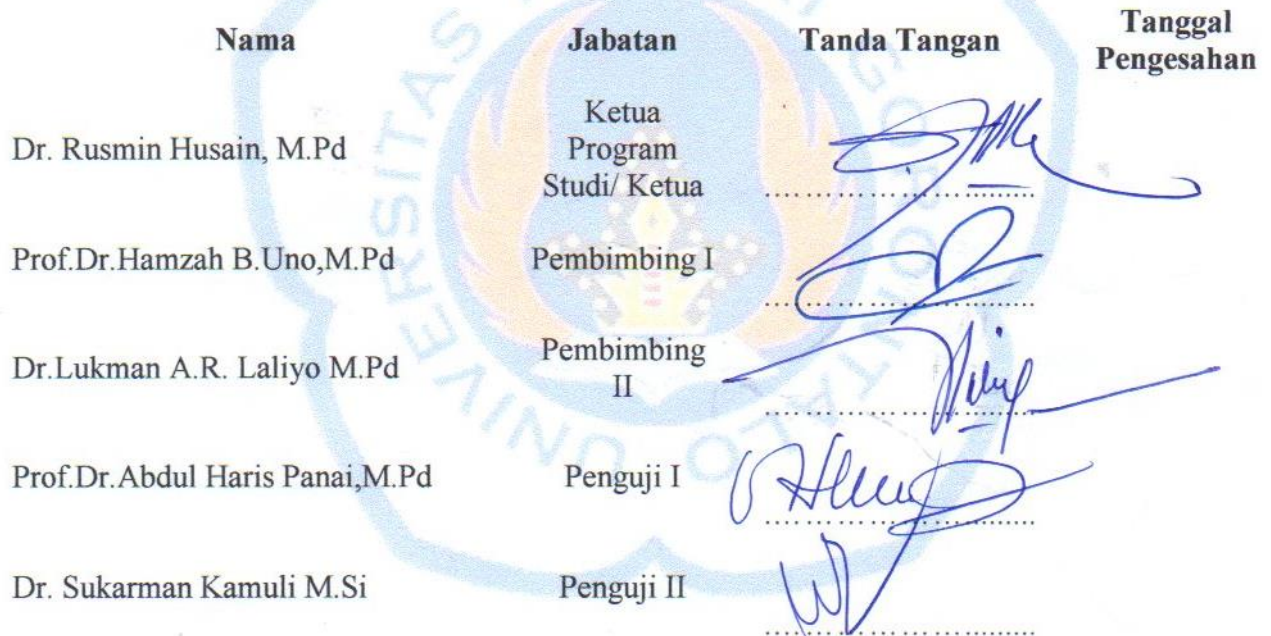 Nama Jabatan Tanda Tangan Tanggal
Pengesahan
Ketua
Dr. Rusmin Husain, M.Pd Program
Studi/ Ketua ..............................
Prof.Dr.Hamzah B.Uno,M.Pd Pembimbing I ..............................
Dr.Lukman A.R. Laliyo M.Pd Pembimbing
II ..............................
Prof.Dr.Abdul Haris Panai,M.Pd Penguji I ..............................
Dr. Sukarman Kamuli M.Si Penguji II ..............................
UNIVERSITAS NEGERI GORONTALO